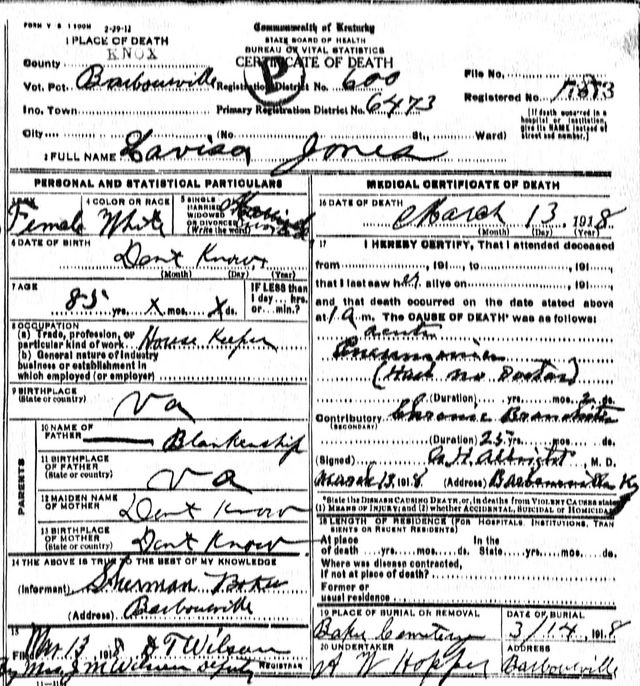 FORM V S 1 100M 2-29-12
Commonwealth of Kentucky
STATE BOARD OF HEALTH
BUREAU OF VITAL STATISTICS
CERTIFICATE OF DEATH
1 PLACE OF DEATH
KNOX
County
Vot. Pct. Barbourville Registration District No. 600
P
File No.
Registered No.
Inc. Town Primary Registration District No. 6473
[If death occurred in a hospital or institution, give its NAME instead of street and number.]
City (No. St., Ward)
2 FULL NAME Lavisa Jones
PERSONAL AND STATISTICAL PARTICULARS
Female
4 COLOR OR RACE
White
5 SINGLE
MARRIED
WIDOWED
OR DIVORCED
(Write the word)
6 DATE OF BIRTH
Dont Know
(Month) (Day) (Year)
7 AGE
85 yrs. X mos. X ds.
IF LESS than
1 day, hrs.
or min.?
8 OCCUPATION
(a) Trade, profession, or
particular kind of work House Keeper
(b) General nature of industry
business or establishment in
which employed (or employer)
9 BIRTHPLACE
(State or country)
Va
PARENTS
10 NAME OF
FATHER Blankenship
11 BIRTHPLACE
OF FATHER
(State or country)
Va
12 MAIDEN NAME
OF MOTHER
Dont Know
13 BIRTHPLACE
OF MOTHER
(State or country)
Dont Know
14 THE ABOVE IS TRUE TO THE BEST OF MY KNOWLEDGE
(Informant) Sherman Baker
(Address) Barbourville
15
Filed Mar 13 1918 S T Wilson
By Mrs J M Wilson Deputy REGISTRAR
11-1184
MEDICAL CERTIFICATE OF DEATH
16 DATE OF DEATH
March 13, 1918
(Month) (Day) (Year)
17 I HEREBY CERTIFY, That I attended deceased
from , 191 , to , 191 ,
that I last saw her alive on , 191 ,
and that death occurred on the date stated above
at 1 a m. The CAUSE OF DEATH* was as follows:
acute
Pneumonia
(Had no Doctor)
(Duration) yrs. mos. ds.
Contributory Chronic Bronchitis
(SECONDARY)
(Duration) 25 yrs. mos. ds.
(Signed) Albright M. D.
March 13, 1918 (Address) Barbourville Ky
*State the DISEASE CAUSING DEATH, or, in deaths from VIOLENT CAUSES state
(1) MEANS OF INJURY; and (2) whether ACCIDENTAL, SUICIDAL OR HOMICIDAL
18 LENGTH OF RESIDENCE (FOR HOSPITALS, INSTITUTIONS, TRANSIENTS OR RECENT RESIDENTS)
At place In the
of death yrs. mos. ds. State yrs. mos. ds.
Where was disease contracted,
if not at place of death?
Former or
usual residence
19 PLACE OF BURIAL OR REMOVAL
Baker Cemetery
DATE OF BURIAL
3/14, 1918
20 UNDERTAKER
A W Hopper
ADDRESS
Barbourville